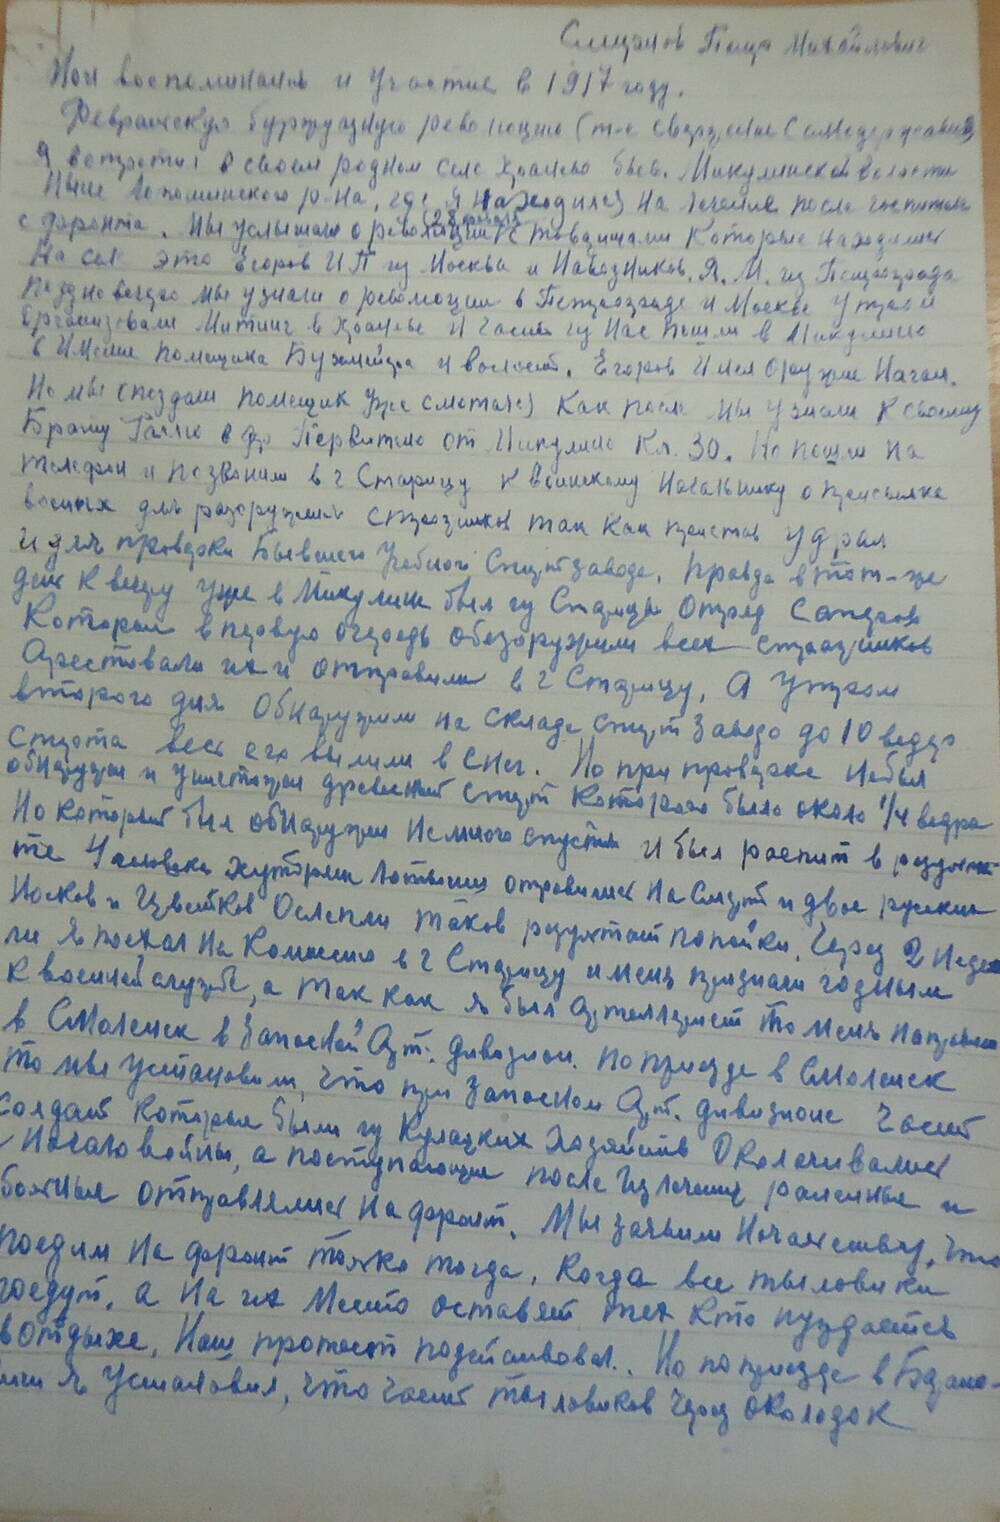 Петр Михайлович
Мои воспоминания и участие в 1917 году.
Февральскую буржуазную революцию (т-е свержение Самодержавия)
Я встретил в своем родном селе бывш. Микулинской волости
Ныне р-на, где Я находился на лечение после госпиталя
с фронта. Мы услышали о революции с товарищами Которые находились
На селе это Егоров И П из Москвы и Навозников. Я. М. из Петрограда
Поздно вечером мы узнали о революции в Петрограде и Москве Утром
организовали Митинг в и часть из Нас пошли в Микулино
в Имение помещика и волость. Егоров Имел Оружие Наган.
Но мы опоздали помещик уже смотался Как после мы узнали К своему
Брату в Первитино от Микулино Км. 30. Но пошли на
телефон и позвонили в г Старицу к Воинскому Начальнику о присылке
военых для разоружения стражников так как пристав удрал
и для проверки Бывшего Спиртзавода. Правда в тот-же
день к вечеру уже в Микулине был из Старицы отряд Саперов
Которые в первую очередь обезоружили всех стражников
Арестовали их и отправили в г Старицу. А Утром
второго дня Обнаружили на складе Спирт Завода до 10 ведер
спирта весь его вылили в снег. Но при проверке небыл
обнаружен и уничтожен древесный спирт Которого было около 1/4 ведра
Но который был обнаружен немного спустя и был распит в
те 4 человека отравились На смерть и двое русских
Носков и Цветков Ослепли таков попойки. Через 2 неде
ли Я поехал На Комиссию в г Старицу и меня признали годным
к военей службе, а так как я был Артиллерист то меня направили
в Смоленск в Запасной Арт. дивизион. По приезде в Смоленск
то мы установили, что при Запасном Арт. дивизионе часть
солдат которые были из Кулацких Хозяйств Околачивались
с Начало войны, а поступающие после излечения раненые и
больные отправлялись На фронт. Мы заявили Начальству, что
поедим На фронт только тогда, Когда все тыловики
поедут, а На их Место оставят тех кто нуждается
в отдыхе, Наш протест подействовал. Но по приезде в
Я Установил, что часть тыловиков через околодок